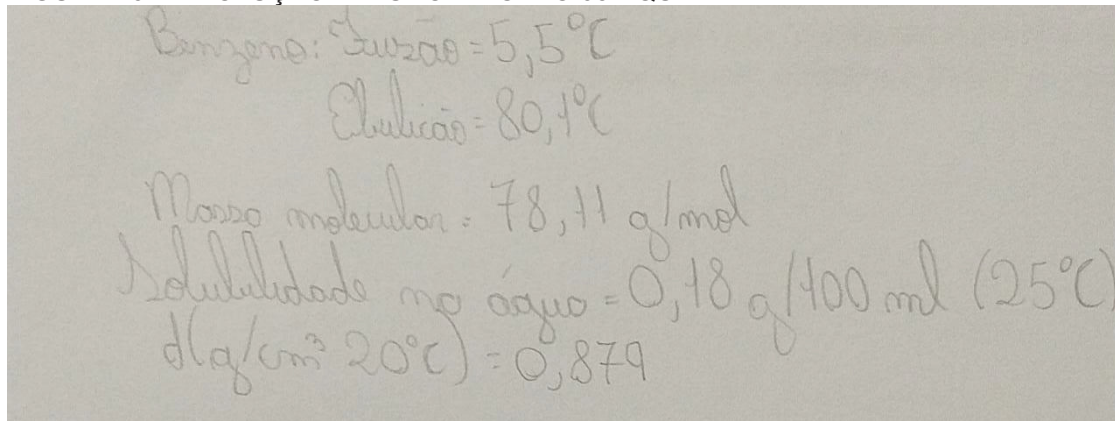 Benzeno: Fusão = 5,5°C
Ebulição = 80,1°C
Massa molecular = 78,11 g/mol
Solubilidade na água = 0,18 g/100 ml (25°C)
d(g/cm³ 20°C) = 0,879